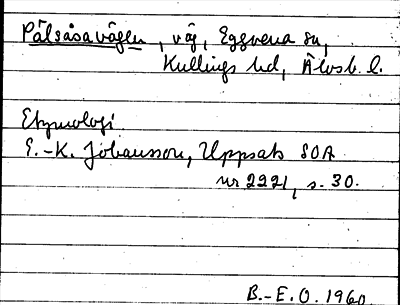 Pålsåsavägen, väg, Eggvena sn,
Kullings hd, Älvsb. l.
Etymologi
E.-K. Johansson, Uppsats SOA
nr 2221, s. 30.
B.-E.O. 1960